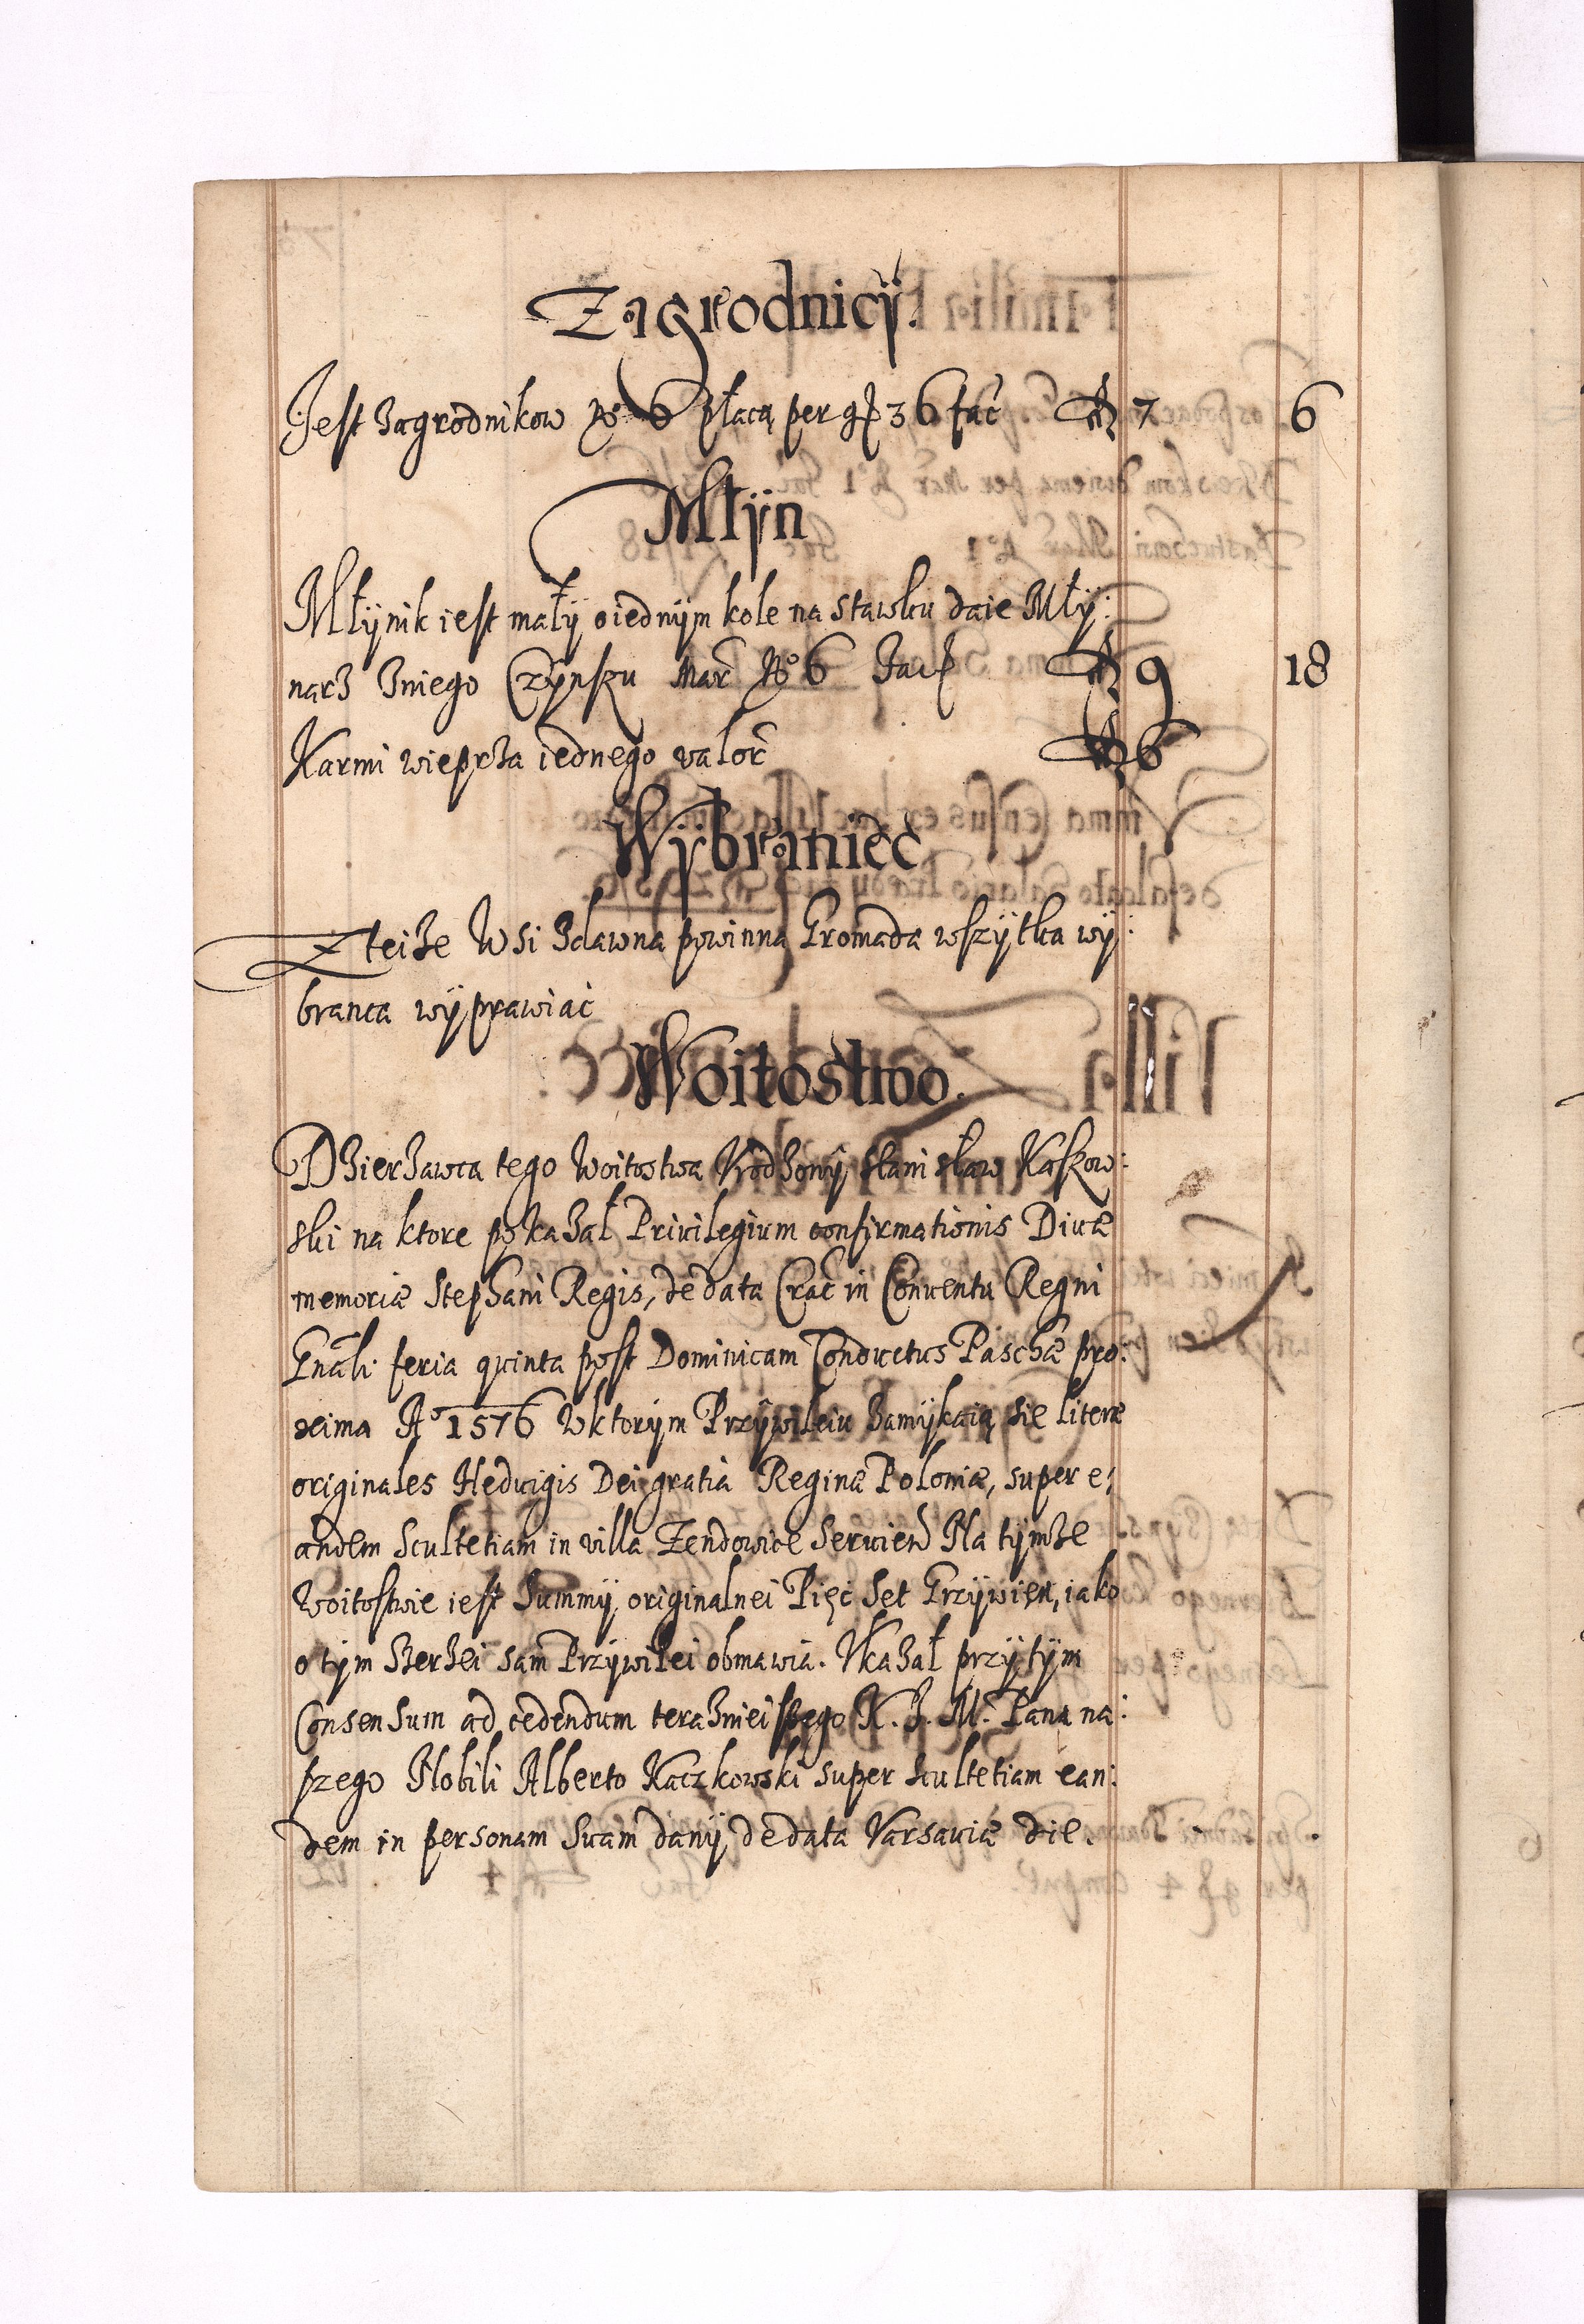 Zagrodnicÿ.
Jest Zagrodnikow No 6 płacą per gſ 36 fac̃ fl 7 6
Młÿn
Młÿnik iest małÿ o iednÿm kole na stawku daie Młÿ:
narz Zniego Czÿnszu Mar̃ No 6 Facſ fl 9 18
Karmi wieprza iednego valor̃ fl 6
Wÿbraniec
Z teiże Wsi Zdawna powinna Gromada wszÿtka wÿ:
branca wÿprawiac
Woitostwo.
Dzierzawca tego Woitostwa Vrodzonÿ Stanisław Kaskow:
ski na ktore pokazał Priuilegium confirmationis Diuæ
memoriæ Stephani Regis, de data Crac̃ in Conuentu Regni
Gnãli feria quinta post Dominicam Conductus Paschæ pro:
xima Aº 1576 Wktorÿm Przÿwileiu Zamÿkaią sie literæ
originales Heduigis Dei gratia Reginæ Poloniæ, super e:
andem Scultetiam in villa Zendowice Seruien̄ Na tÿmże
Woitostwie iest Summÿ originalnei Pięc Set Grzÿwien, iako
o tÿm Szerzei sam Przÿwilei obmawia. Vkazał przÿtÿm
Consensum ad cedendum terazniejszego K. J. M. Pana na:
szego Nobili Alberto Kaczkowski super Scultetiam ean:
dem in personam suam danÿ de data Varsauiæ die.